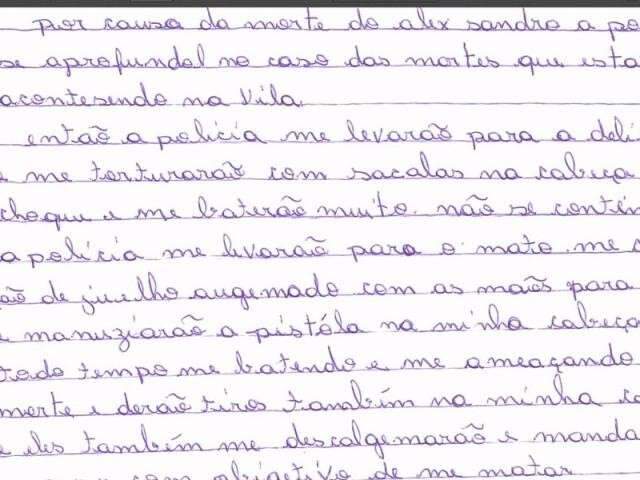 por causa da morte do alex sandro a po
se aprofundol no caso das mortes que esta
acontesendo na Vila.
então a policia me levarão para a deli
e me torturarão com sacalas na cabeça
choque e me baterão muito. não se contin
a policia me levarão para o mato. me c
ão de juelho augemado com as mãos para
e manuziarão a pistóla na minha cabeça
todo tempo me batendo e me ameaçando
morte e derão tiros também na minha ca
e eles também me descalgemarão e manda
com objgetivo de me matar